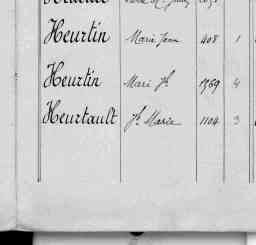 Heurtin Marie Jean 408 1
Heurtin Marie Jh 1369 4
Heurtault Jh Marie 1104 3